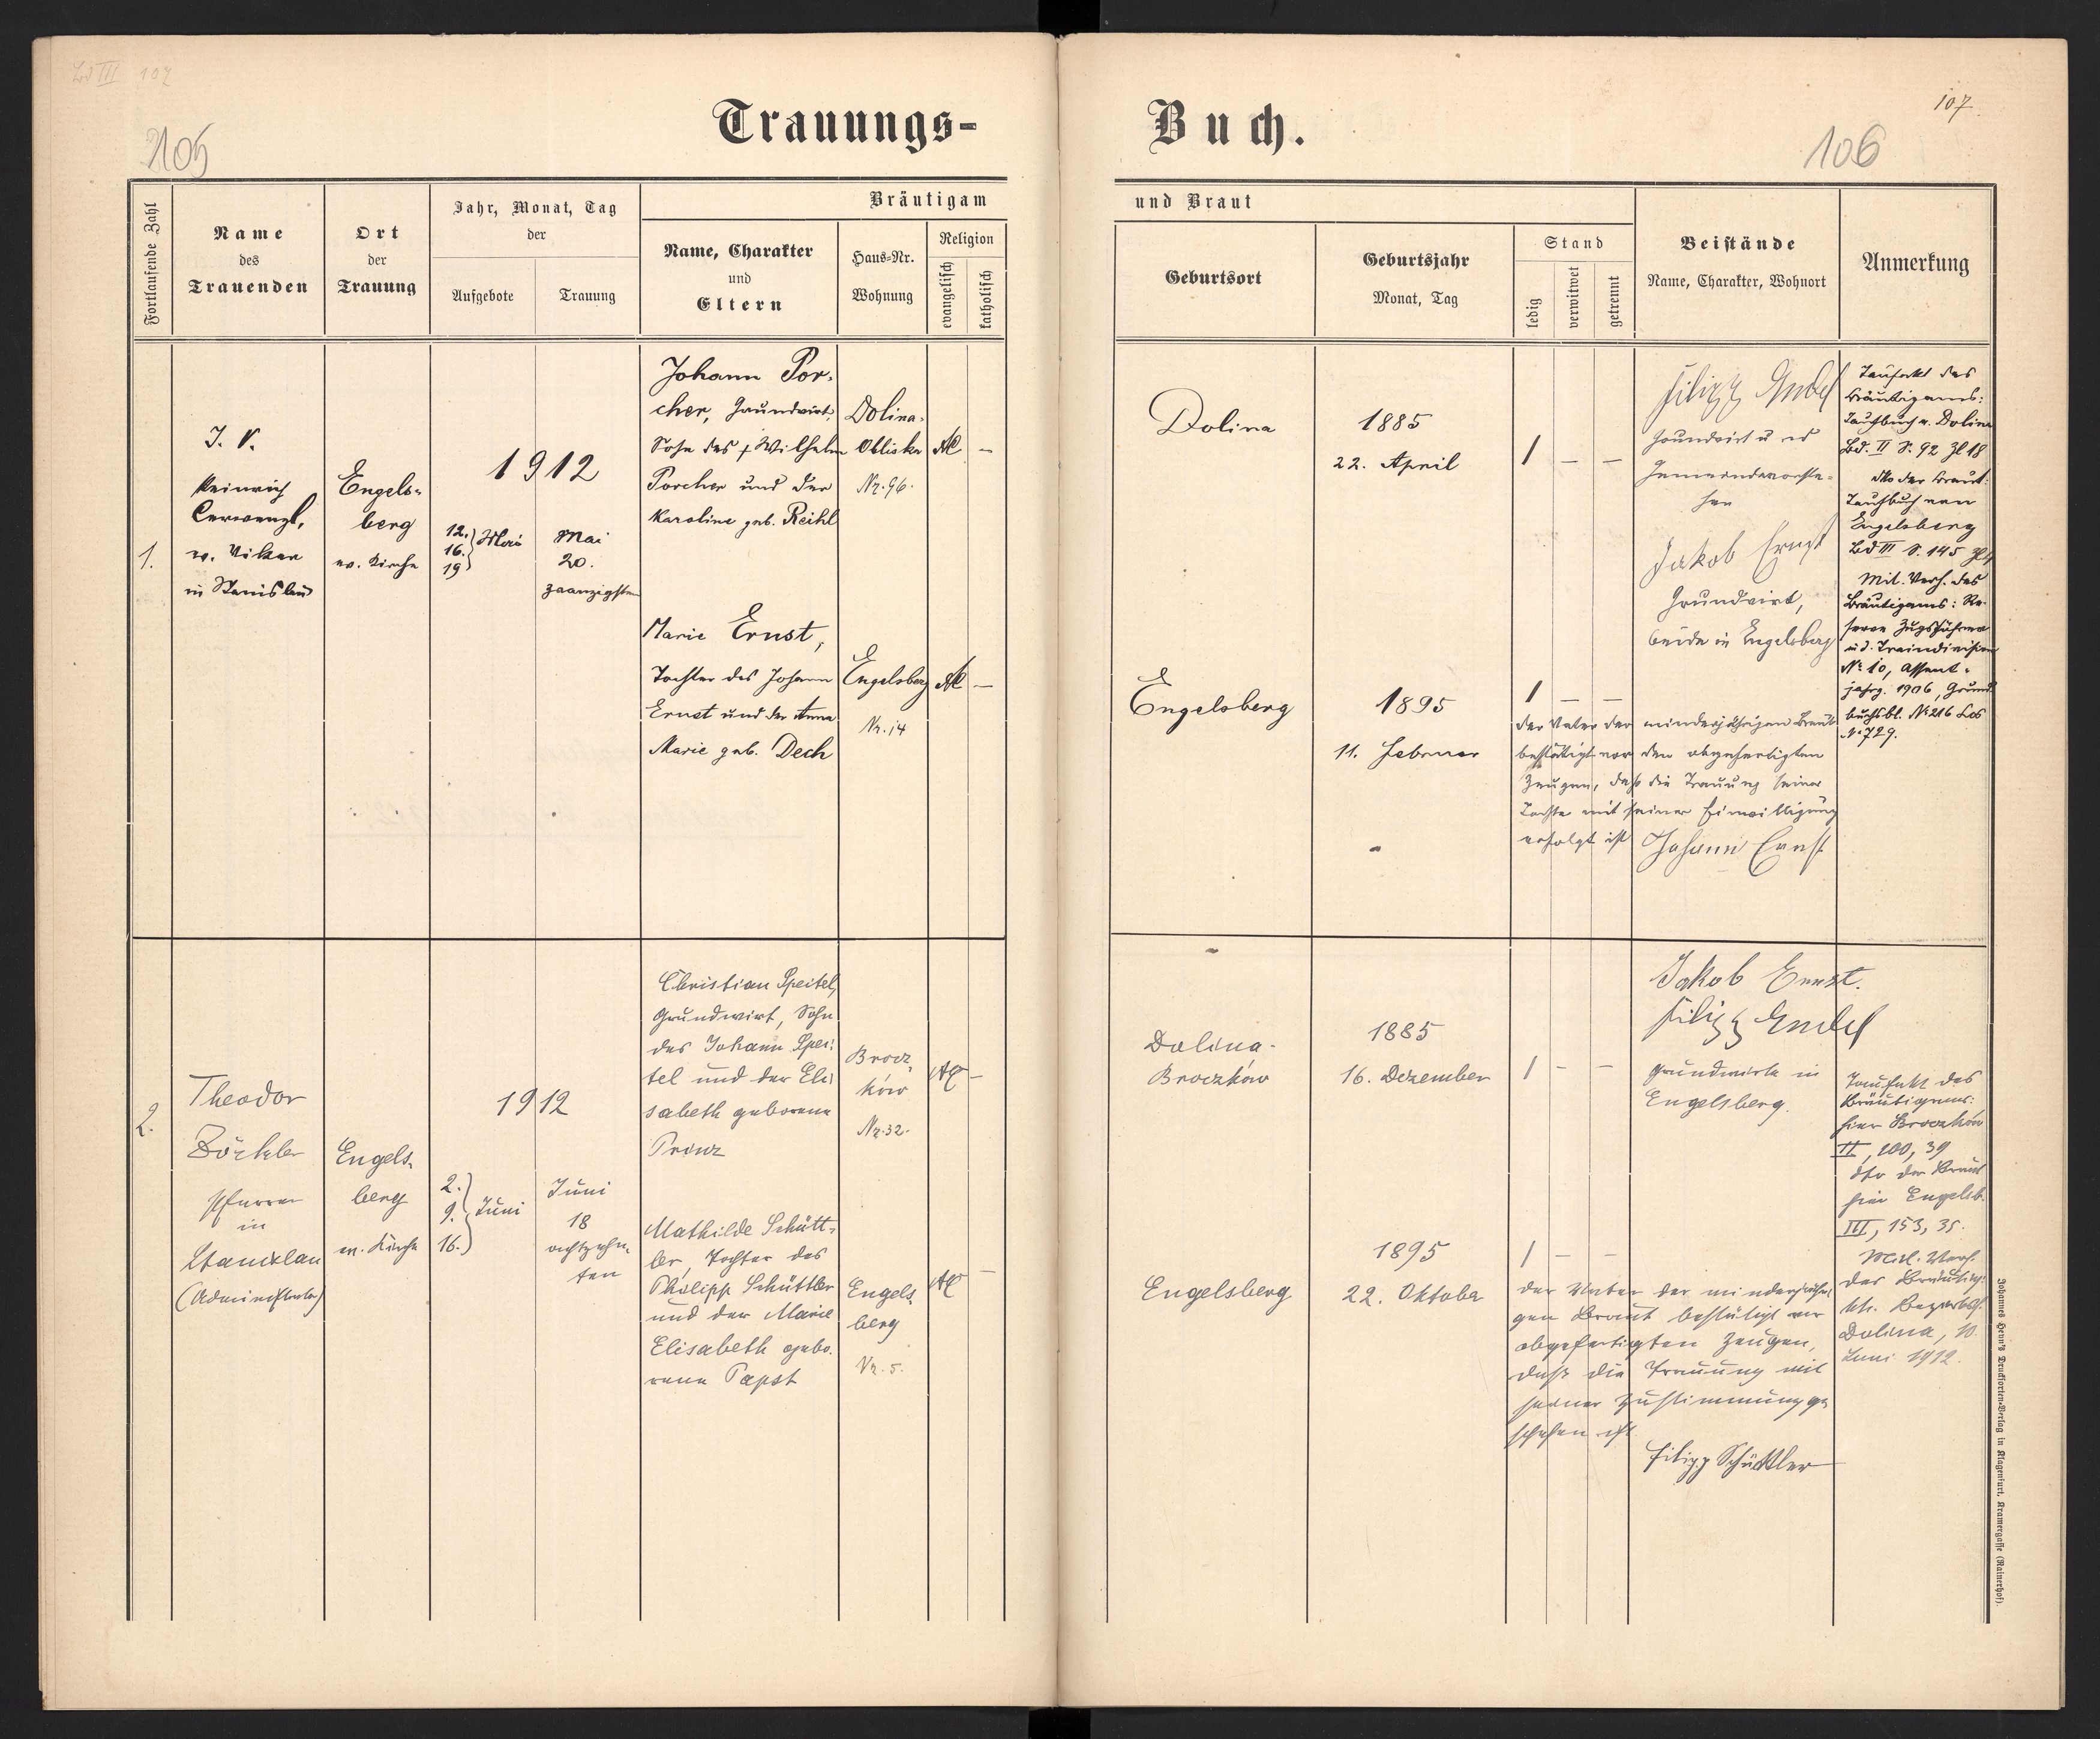 Bd III 107
105
Trauungs-
Fortlaufende Zahl
Name
des
Trauenden
Ort
der
Trauung
Jahr, Monat, Tag
der
Aufgebote
Trauung
Bräutigam
Name, Charakter
und
Eltern
Haus-Nr.
Wohnung
Religion
evangelisch
katholisch
1.
I. V.
Heinrich
ev. Vikar
in Stanislau
Engels-
berg
ev. Kirche
1912
12.
16. Mai
19
Mai
20.
zwanzigsten
Johann Por-
cher, Grundwirt,
Sohn des † Wilhelm
Porcher und der
Karoline geb. Reihl
Dolina-
Obliska
Nr. 96.
AC
-
Marie Ernst,
Tochter des Johann
Ernst und der Anna
Marie geb. Dech
Engelsberg
Nr. 14
AC
-
2.
Theodor
Zöckler
Pfarrer
in
Stanislau
(Administrator)
Engels-
berg
ev. Kirche
1912
2.
9. Juni
16.
Juni
18
achtzehn-
ten
Christian Speitel,
Grundwirt, Sohn
des Johann Spei-
tel und der Eli-
sabeth geborene
Prinz
Brocz-
ków
Nr. 32.
AC
-
Mathilde Schütt-
ler, Tochter des
Philipp Schüttler
und der Marie
Elisabeth gebo-
rene Papst
Engels-
berg
Nr. 5.
AC
-
107.
106
Buch.
und Braut
Geburtsort
Geburtsjahr
Monat, Tag
Stand
ledig
verwitwet
getrennt
Beistände
Name, Charakter, Wohnort
Anmerkung
Dolina
1885
22. April
/ - -
Filipp Endel
Grundwirt u
Gemeindevorste-
her
Jakob Ernst
Grundwirt,
beide in Engelsberg
Taufakt des
Bräutigams:
Taufbuch v. Dolina
Bd. II S. 92 Zl 18
dto der Braut:
Taufbuch von
Engelsberg
Bd III S. 145 Zl
Mil. Verh. des
Bräutigams: Re-
serve Zugsführer
u. d. Traindivision
No 10, Assent-
jahrg. 1906, Grund-
buchsbl. No 216 Los
No 729.
Engelsberg
1895
11. Februar
/ - -
der Vater der minderjährigen Braut
bestätigt vor den abgefertigten
Zeugen, daß die Trauung seiner
Tochter mit seiner Einwilligung
erfolgt ist Johann Ernst
Dolina-
Broczków
1885
16. Dezember
/ - -
Jakob Ernst.
Filipp Endel
Grundwirte in
Engelsberg.
Taufakt des
Bräutigams:
hier Broczków
II, 100, 39
dto der Braut
hier Engelsb.
III, 153, 35.
Mil. Verh.
des Bräutig.
kk. Bezirksh.
Dolina, 10.
Juni 1912.
Engelsberg
1895
22. Oktober
/ - -
der Vater der minderjähri-
gen Braut bestätigt vor
abgefertigten Zeugen,
daß die Trauung mit
seiner Zustimmung ge-
schehen ist
Filipp Schüttler
Johannes Heyn's Drucksorten-Verlag in Klagenfurt, Kramergasse (Rainerhof).